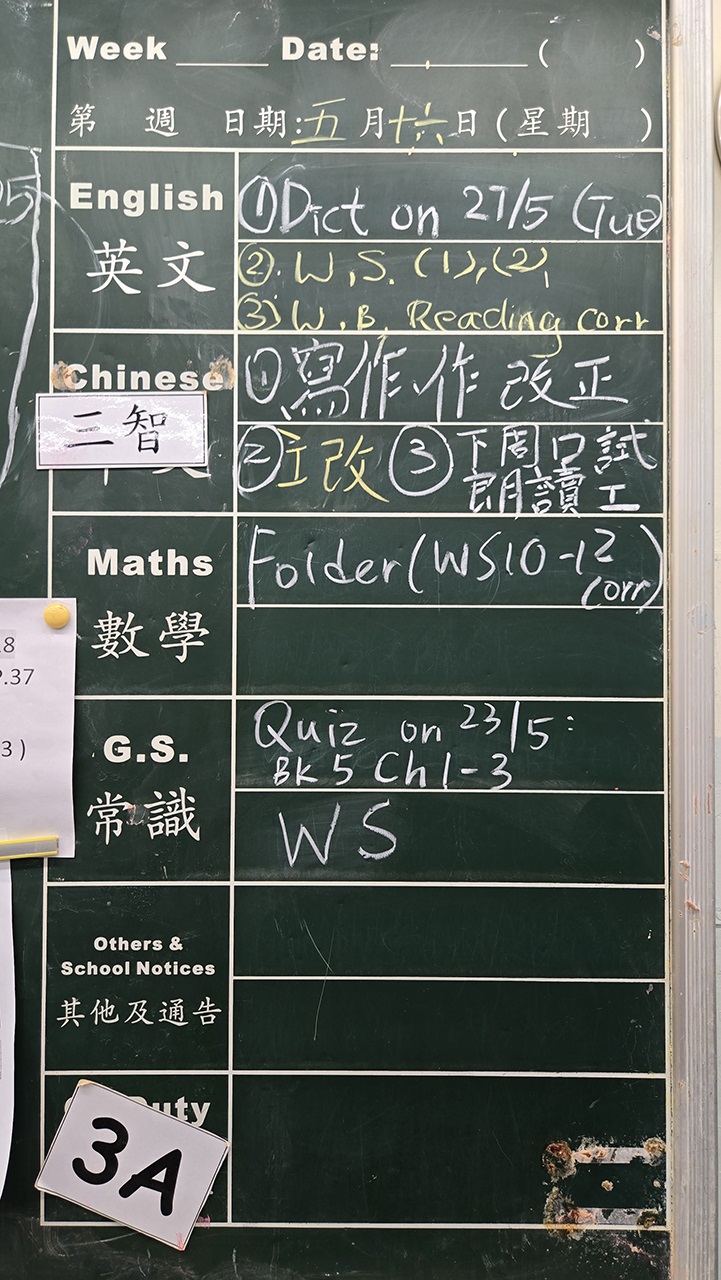 Week ____ Date: ______ ( )
第 週 日期:五月十六日(星期 )
English
英文
①Dict on 27/5 (Tue)
②. W.S. (1),(2),
③ W.B. Reading corr
Chinese
三智
①寫作作改正
②立改 ③下周口試
朗讀工
Maths
數學
Folder(WS10-12
corr)
G.S.
常識
Quiz on 23/5:
BK5 Ch1-3
WS
Others &
School Notices
其他及通告
uty
3A
8
.37
3)
5